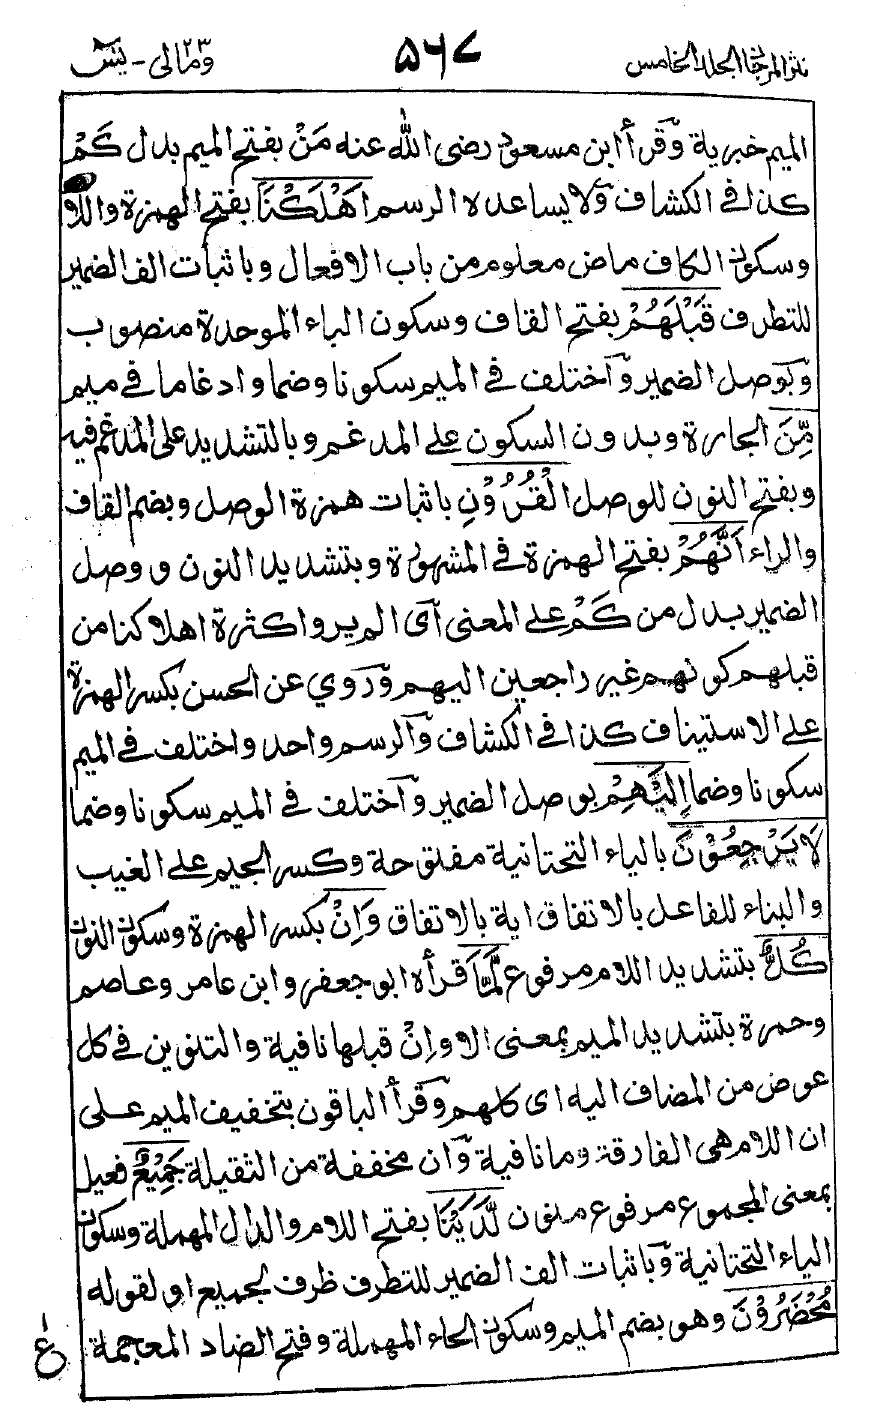 نثر المرجان المجلد الخامس
۵۶۷
ومالی ۲۳ - یٰسٓ
الميم خبرية وقرأ ابن مسعود رضى الله عنه مَنْ بفتح الميم بدل كَمْ
كذا فى الكشاف ولا يساعده الرسم اَهْلَكْنَا بفتح الهمزة واللام
وسكون الكاف ماض معلوم من باب الافعال وباثبات الف الضمير
للتطرف قَبْلَهُمْ بفتح القاف وسكون الباء الموحدة منصوب
وبوصل الضمير واختلف فى الميم سكونا وضما وادغاما فى ميم
مِّنَ الجارة وبدون السكون على المدغم وبالتشديد على المدغم فيه
وبفتح النون للوصل الْقُرُوْنِ باثبات همزة الوصل وبضم القاف
والراء اَنَّهُمْ بفتح الهمزة فى المشهورة وبتشديد النون ووصل
الضمير بدل من كَمْ على المعنى أى الم يروا كثرة اهلاكنا من
قبلهم كونهم غير راجعين اليهم وروي عن الحسن بكسر الهمزة
على الاستيناف كذا فى الكشاف والرسم واحد واختلف فى الميم
سكونا وضما اِلَيْهِمْ بوصل الضمير واختلف فى الميم سكونا وضما
لَا يَرْجِعُوْنَ بالياء التحتانية مفتوحة وكسر الجيم على الغيب
والبناء للفاعل بالاتفاق اية بالاتفاق وَاِنْ بكسر الهمزة وسكون النون
كُلٌّ بتشديد اللام مرفوع لَمَّا قرأه ابو جعفر وابن عامر وعاصم
وحمزة بتشديد الميم بمعنى الا واِنْ قبلها نافية والتنوين فى كل
عوض من المضاف اليه اى كلهم وقرأ الباقون بتخفيف الميم على
ان اللام هى الفارقة وما نافية وان مخففة من الثقيلة جَمِيْعٌ فعيل
بمعنى المجموع مرفوع منون لَّدَيْنَا بفتح اللام والدال المهملة وسكون
الياء التحتانية وباثبات الف الضمير للتطرف ظرف لجميع او لقوله
مُحْضَرُوْنَ وهو بضم الميم وسكون الحاء المهملة وفتح الضاد المعجمة
ع